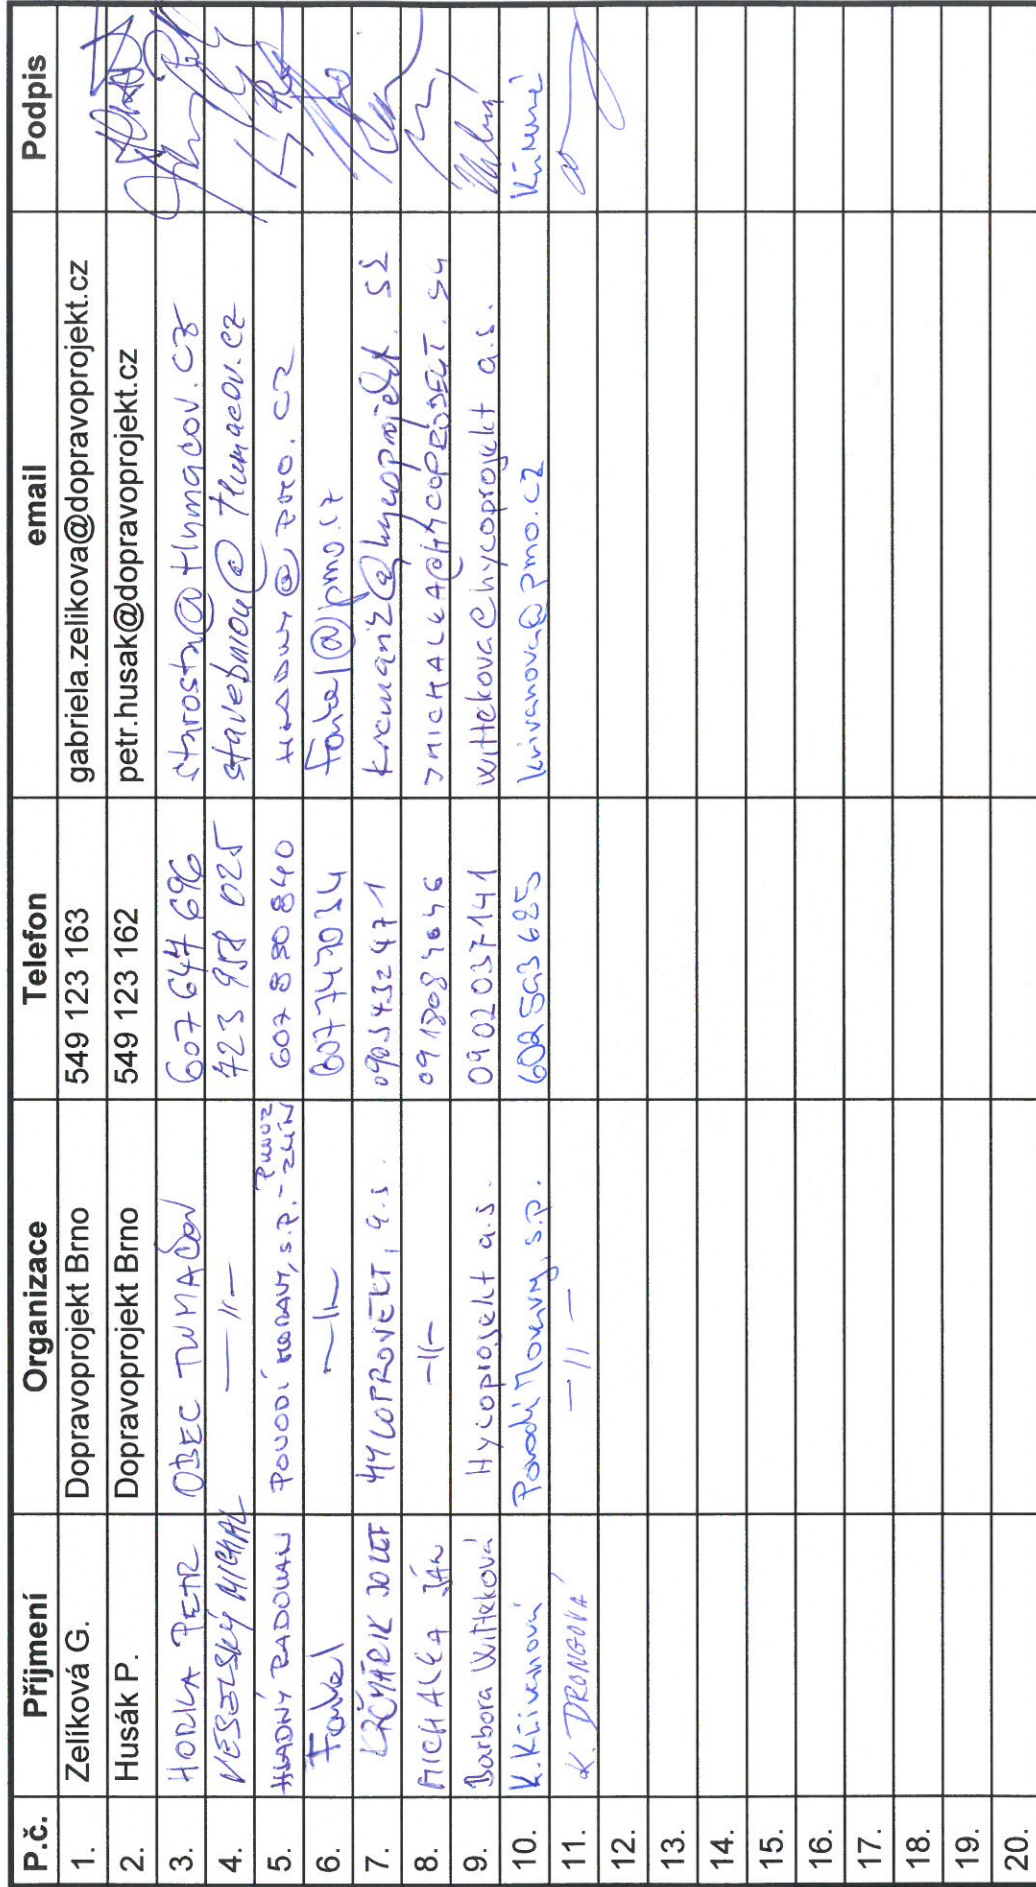 P.č. Příjmení Organizace Telefon email Podpis
1. Zelíková G. Dopravoprojekt Brno 549 123 163 gabriela.zelikova@dopravoprojekt.cz
2. Husák P. Dopravoprojekt Brno 549 123 162 petr.husak@dopravoprojekt.cz
3. HORKA PETR OBEC TLUMAČOV 607 644 696 starosta@tlumacov.cz
4. VESELSKÝ MICHAL —11— 723 958 025 @tlumacov.cz
5. HLADNÝ RADOVAN POVODÍ MORAVY, s.p. - ZLÍN 607 880 840 HLADNY@PMO.CZ
6. —11— 607747034 @pmo.cz
7. KRČMÁRIK JOZEF HYCOPROJEKT, a.s. 0903432471
8. MICHALKA JÁN —11— JMICHALKA@HYCOPROJEKT.SK
9. Barbora Witteková Hycoprojekt a.s. 0902037141 wittekova@hycoprojekt a.s.
10. K. Křivanová Povodí Moravy, s.p. 602 593 625 krivanova@pmo.cz
11. K. DRONGOVÁ —11—
12.
13.
14.
15.
16.
17.
18.
19.
20.